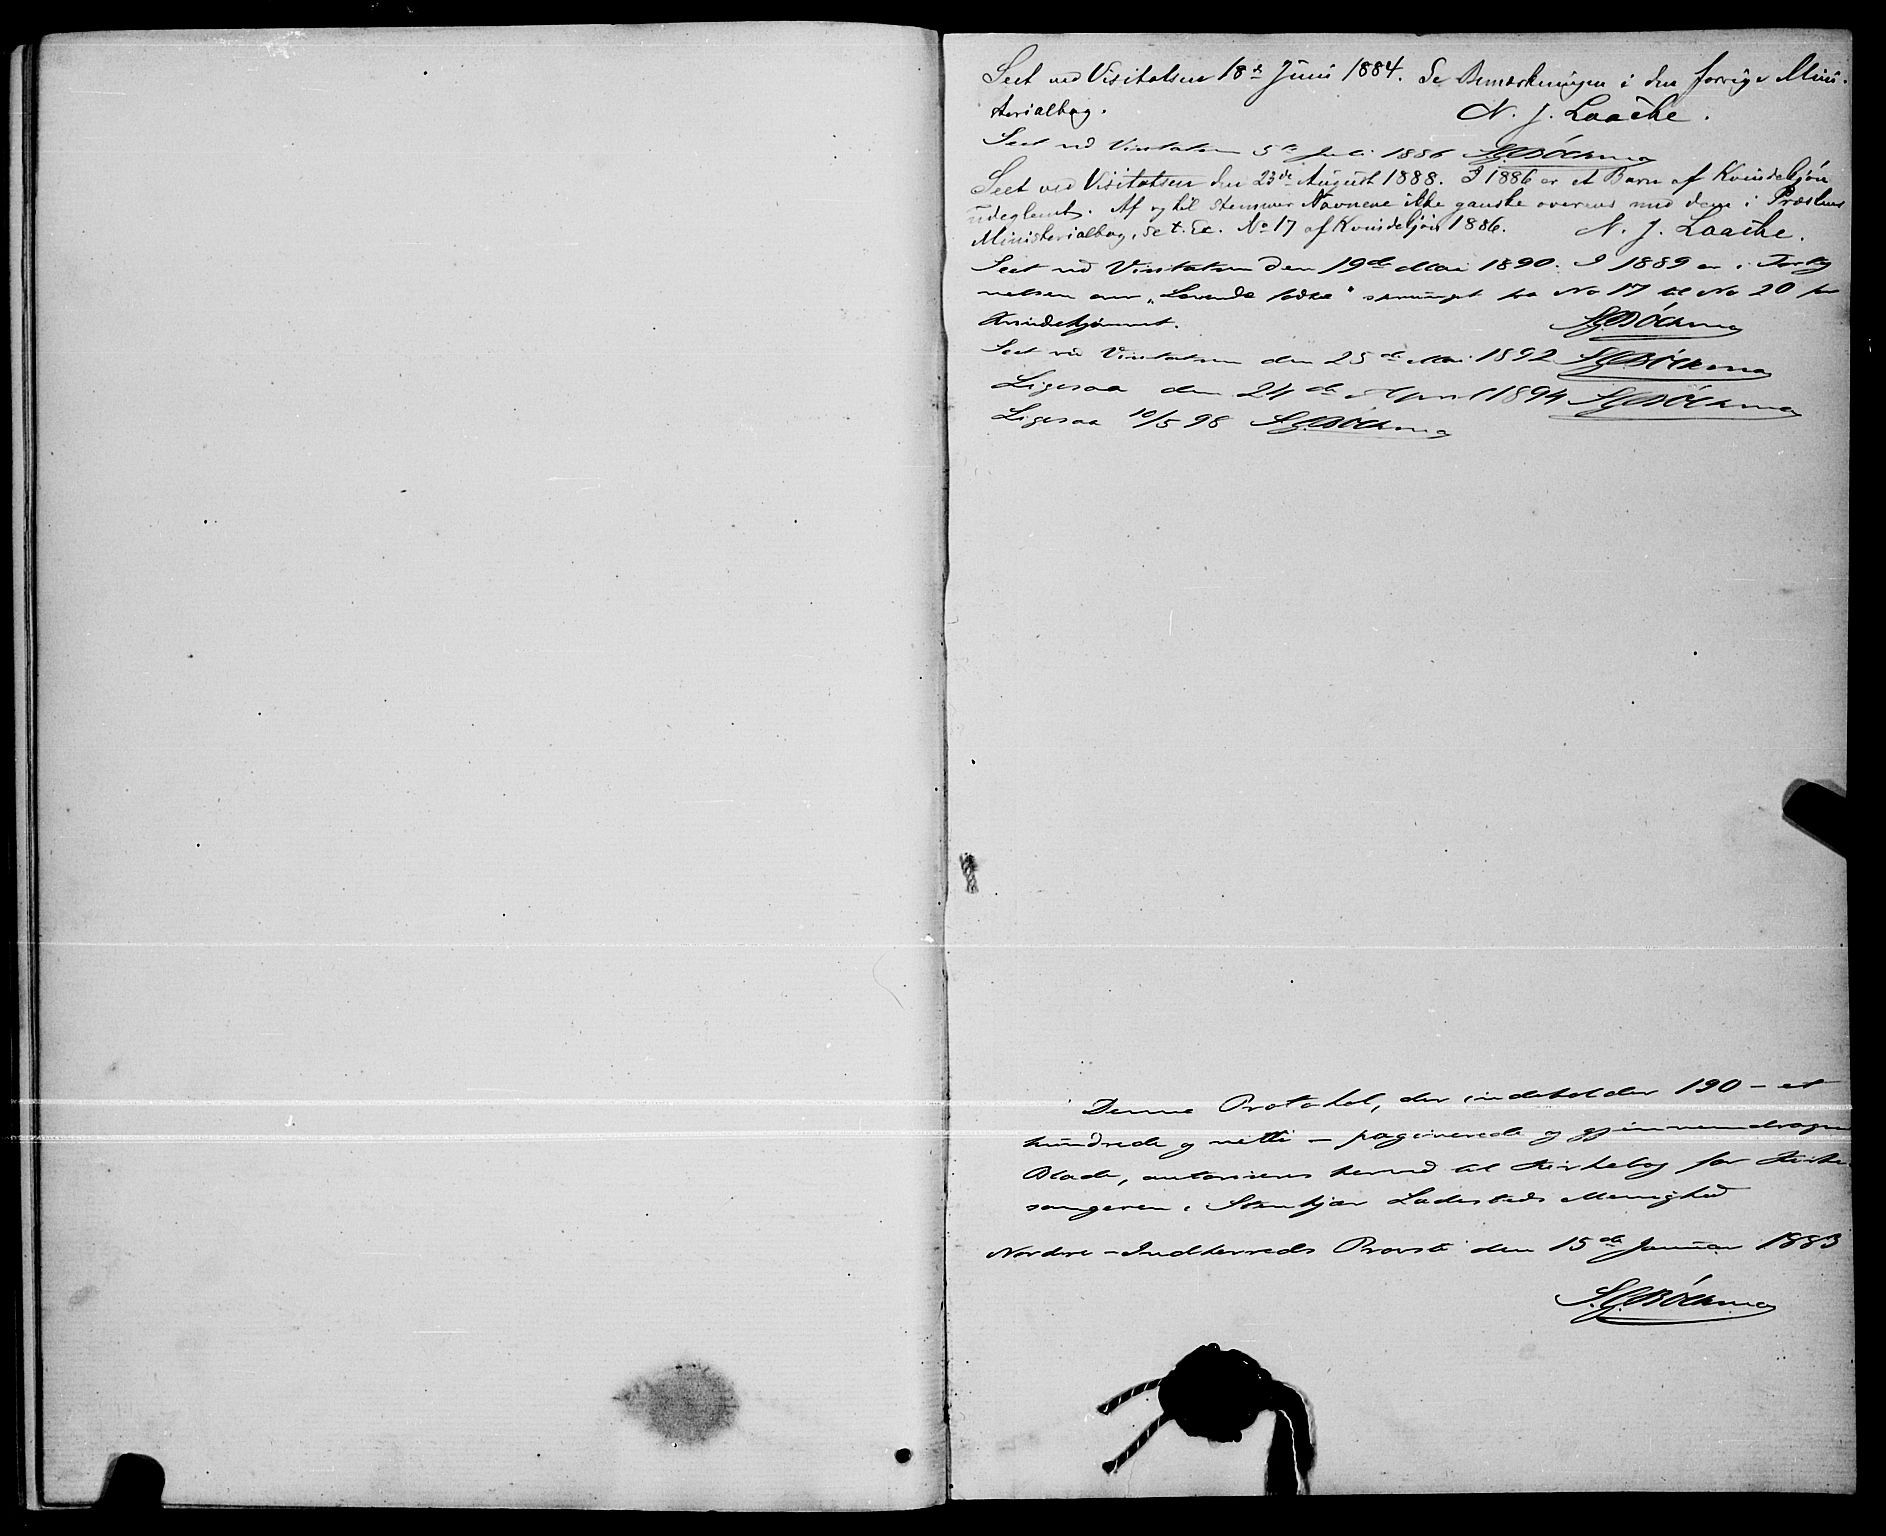 Seet ved Visitatsen 18de Juni 1884. Se Bemærkningen i den forrige Mini-
sterialbog. N. J. Laache.
Seet ved Visitatsen 5te Juli 1886 S. Böckman
Seet ved Visitatsen den 23de August 1888. I 1886 er et Barn af Kvindekjøn
udeglemt. Af og til stemmer Navnene ikke ganske overens med dem i Præstens
Ministerialbog, se t. Ex. No 17 af Kvindekjøn 1886. N. J. Laache.
Seet ved Visitatsen den 19de Mai 1890. I 1889 er i Forteg
nelsen over „Levende fødte" sprunget fra No 17 til No 20 for
Kvindekjønnet. S. Böckman
Seet ved Visitatsen den 25de Mai 1892 S. Böckman
Ligesaa den 24de April 1894 S. Böckman
Ligesaa 10/5 98 S. Böckman
Denne Protokol, der indeholder 190 - et
hundrede og nitti - paginerede og gjennemdragne
Blade, autoriseres herved til Kirkebog for Kirke-
sangeren i Stenkjær Ladesteds Menighed
Nordre-Indherreds Provsti den 15de Januar 1883
S. Böckman